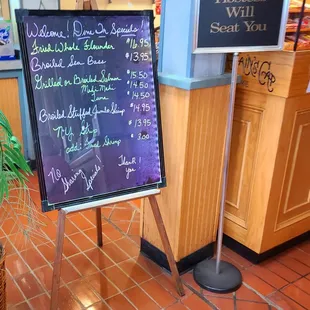 Welcome! Done In Specials!
Fried Whole Flounder $16.95
Broiled Sea Bass $13.95
Grilled or Broiled Salmon $15.50
Mahi-Mahi $14.50
Tuna $14.50
Broiled Stuffed Jumbo Shrimp $14.95
$13.95
add: Fried Shrimp 3.00
No Sharing Specials
Thank you
Hostess
Will
Seat You